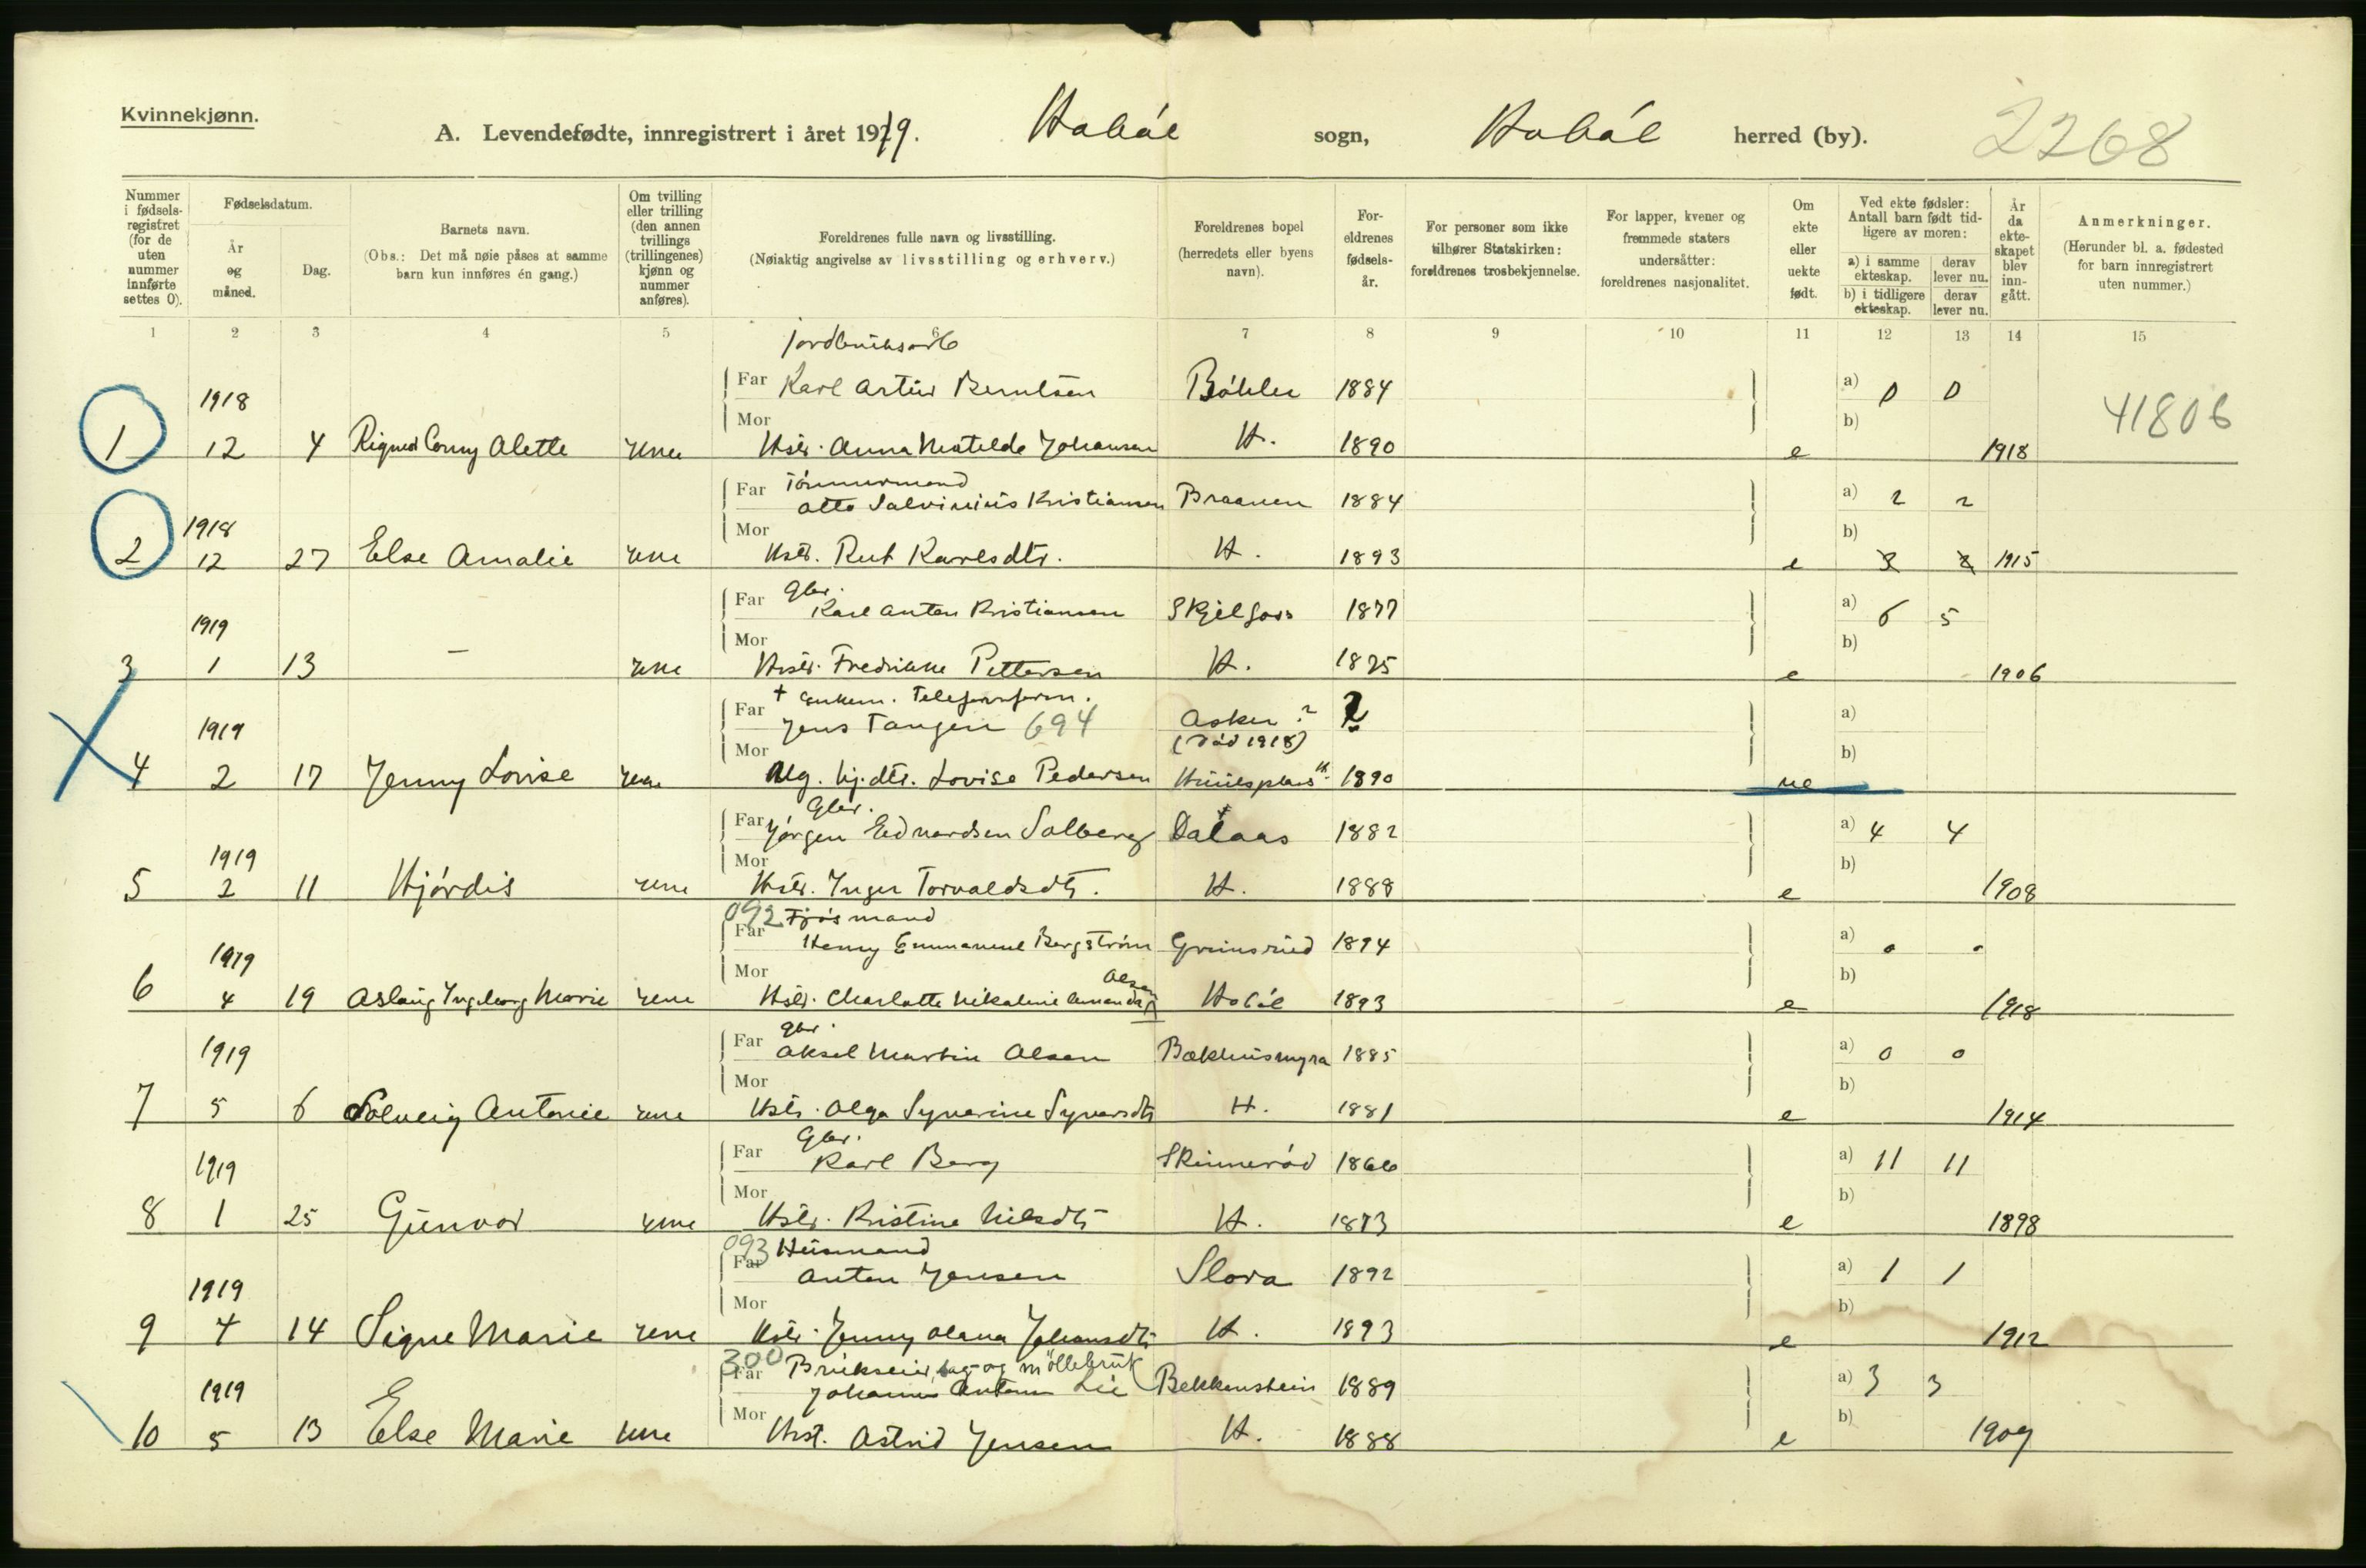 Kvinnekjønn.
A. Levendefødte, innregistrert i året 1919. Hobøl sogn, Hobøl herred (by). 2268
Nummer i fødselsregistret (for de uten nummer innførte settes 0).
Fødselsdatum.
År og måned.
Dag.
Barnets navn.
(Obs.: Det må nøie påses at samme barn kun innføres én gang.)
Om tvilling eller trilling (den annen tvillings (trillingenes) kjønn og nummer anføres).
Foreldrenes fulle navn og livsstilling.
(Nøiaktig angivelse av livsstilling og erhverv.)
Foreldrenes bopel (herredets eller byens navn).
Foreldrenes fødselsår.
For personer som ikke tilhører Statskirken: foreldrenes trosbekjennelse.
For lapper, kvener og fremmede staters undersåtter: foreldrenes nasjonalitet.
Om ekte eller uekte født.
Ved ekte fødsler: Antall barn født tidligere av moren:
a) i samme ekteskap. derav lever nu.
b) i tidligere ekteskap. derav lever nu.
År da ekteskapet blev inngått.
Anmerkninger.
(Herunder bl. a. fødested for barn innregistrert uten nummer.)
1 2 3 4 5 6 7 8 9 10 11 12 13 14 15
jordbruksarb
1918 Far Karl Artur Berntsen 1884 a) 0 0
41806
1 12 4 Alette Mor Hstr. Anna Matelde Johansen H. 1890 e b) 1918
Tømmermand
1918 Far Otto Salvinius Kristiansen Braanen 1884 a) 2 2
2 12 27 Else Amalie Mor Hstr. Rut Karlsdtr. H. 1893 e b) 1915
Gbr.
1919 Far Karl Anton Kristiansen Skjelfoss 1877 a) 6 5
3 1 13 — Mor Hstr. Fredrikke Pettersen H. 1875 e b) 1906
† Enkem. Telefonform.
1919 Far Jens Tangen 694 Asker ? ? a)
(død 1918)
4 2 17 Jenny Lovise Mor Ug. hj.dtr. Lovise Pedersen H. 1890 ue b)
Gbr.
Far Jørgen Edvardsen Solberg Dalaas 1882 a) 4 4
1919
5 2 11 Hjørdis Mor Hstr. Inger Torvaldsdtr. H. 1888 e b) 1908
092 Fjøsmand
1919 Far Henry Emmanuel Bergstrøm Grimsrud 1894 a) 0 0
Olsen
6 4 19 Aslaug Ingeborg Marie Mor Hstr. Charlotte Nikoline Hobøl 1893 e b) 1918
Gbr.
1919 Far Aksel Martin Olsen Bækhusmyra 1885 a) 0 0
7 5 6 Solveig Antonie Mor Hstr. Olga Syverine Syversdtr H. 1881 e b) 1914
Gbr.
1919 Far Karl Berg Skinnerød 1866 a) 11 11
8 1 25 Gunvor Mor Hstr. Kristine Nilsdtr H. 1873 e b) 1898
093 Husmand
1919 Far Anton Jensen Slora 1892 a) 1 1
9 4 14 Signe Marie Mor Hstr. Jenny Olava Johansdtr H. 1893 e b) 1912
300 Brukseier, sag- og møllebruk
1919 Far Johannes Anton Lie Bekkenstein 1889 a) 3 3
10 5 13 Else Marie Mor Hst. Astrid Jensen H. 1888 e b) 1909